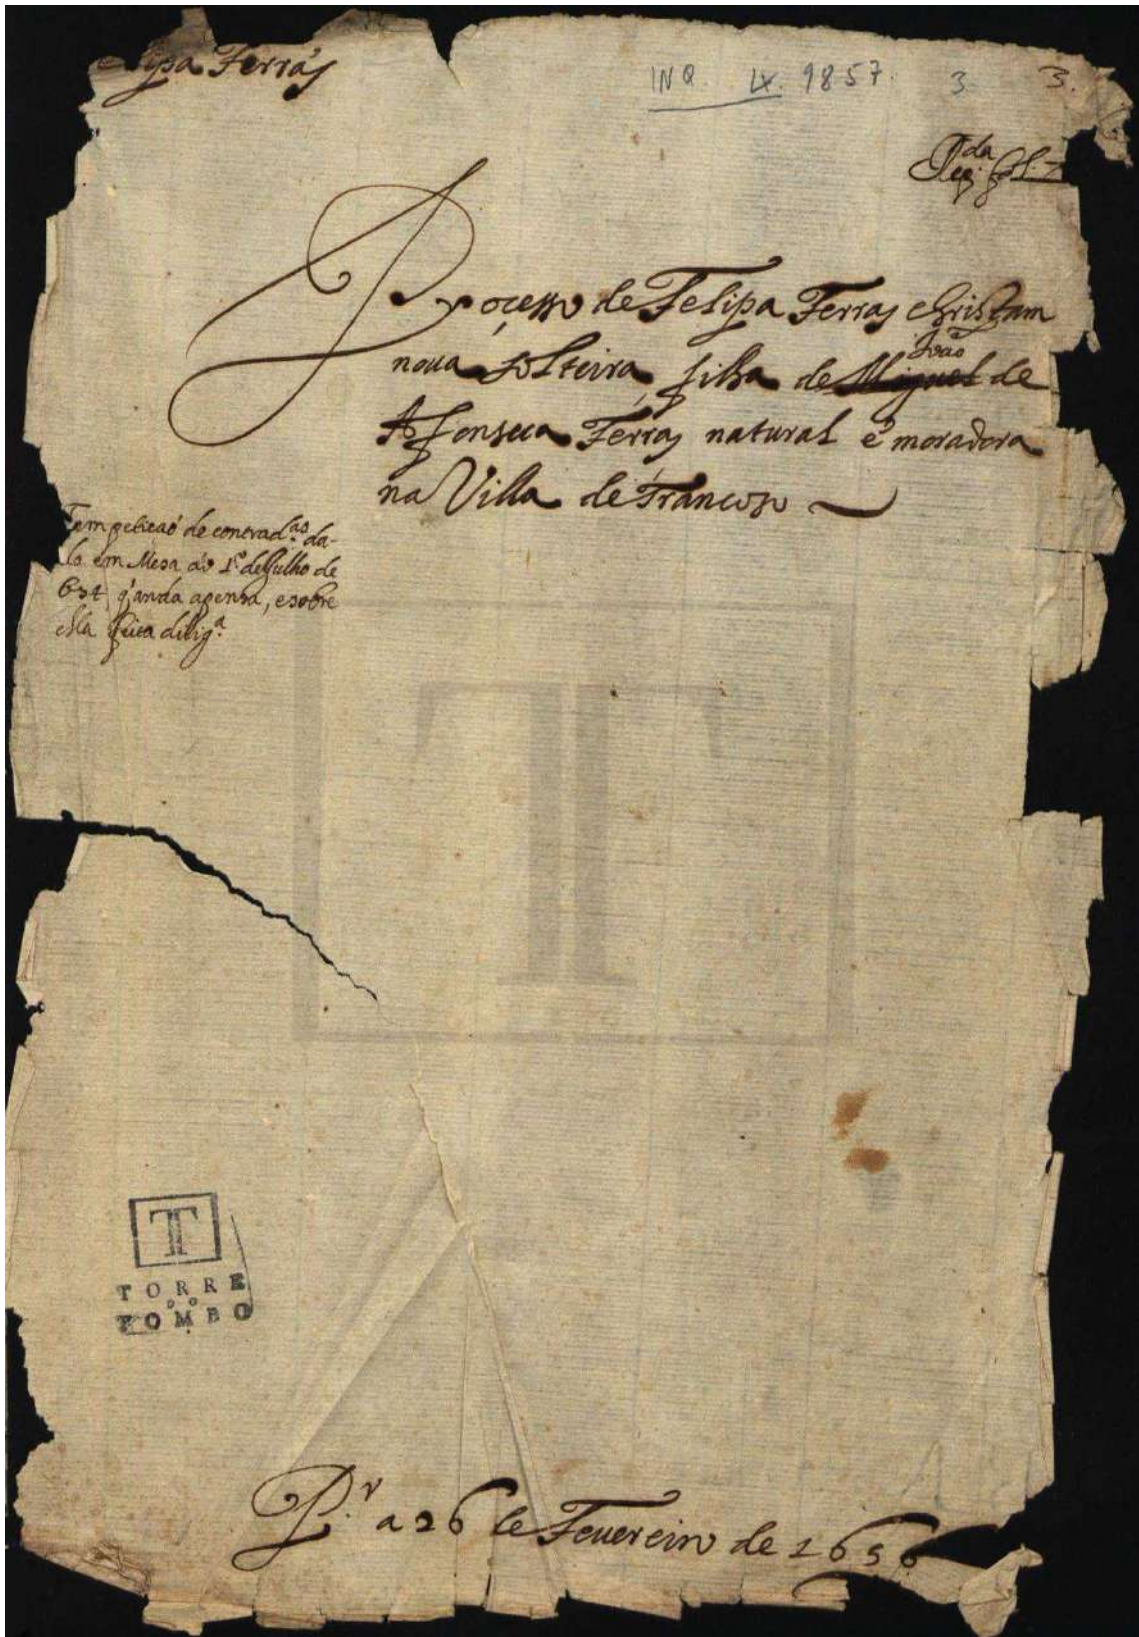 Felipa Ferrás
INQ. LX. 9857. 3 3.
Processo de Felipa Ferras christam
noua solteira filha de Miguel de
João
Afonseca Ferras natural e moradora
na Villa de Trancoso
Tem peticaõ de contrad.as da-
da em Mesa aó 1.º de Julho de
654 q' anda apensa, e sobre
ella feita dilig.a
T
TORRE
DO
TOMBO
P.r a 26 de Feuereiro de 1656